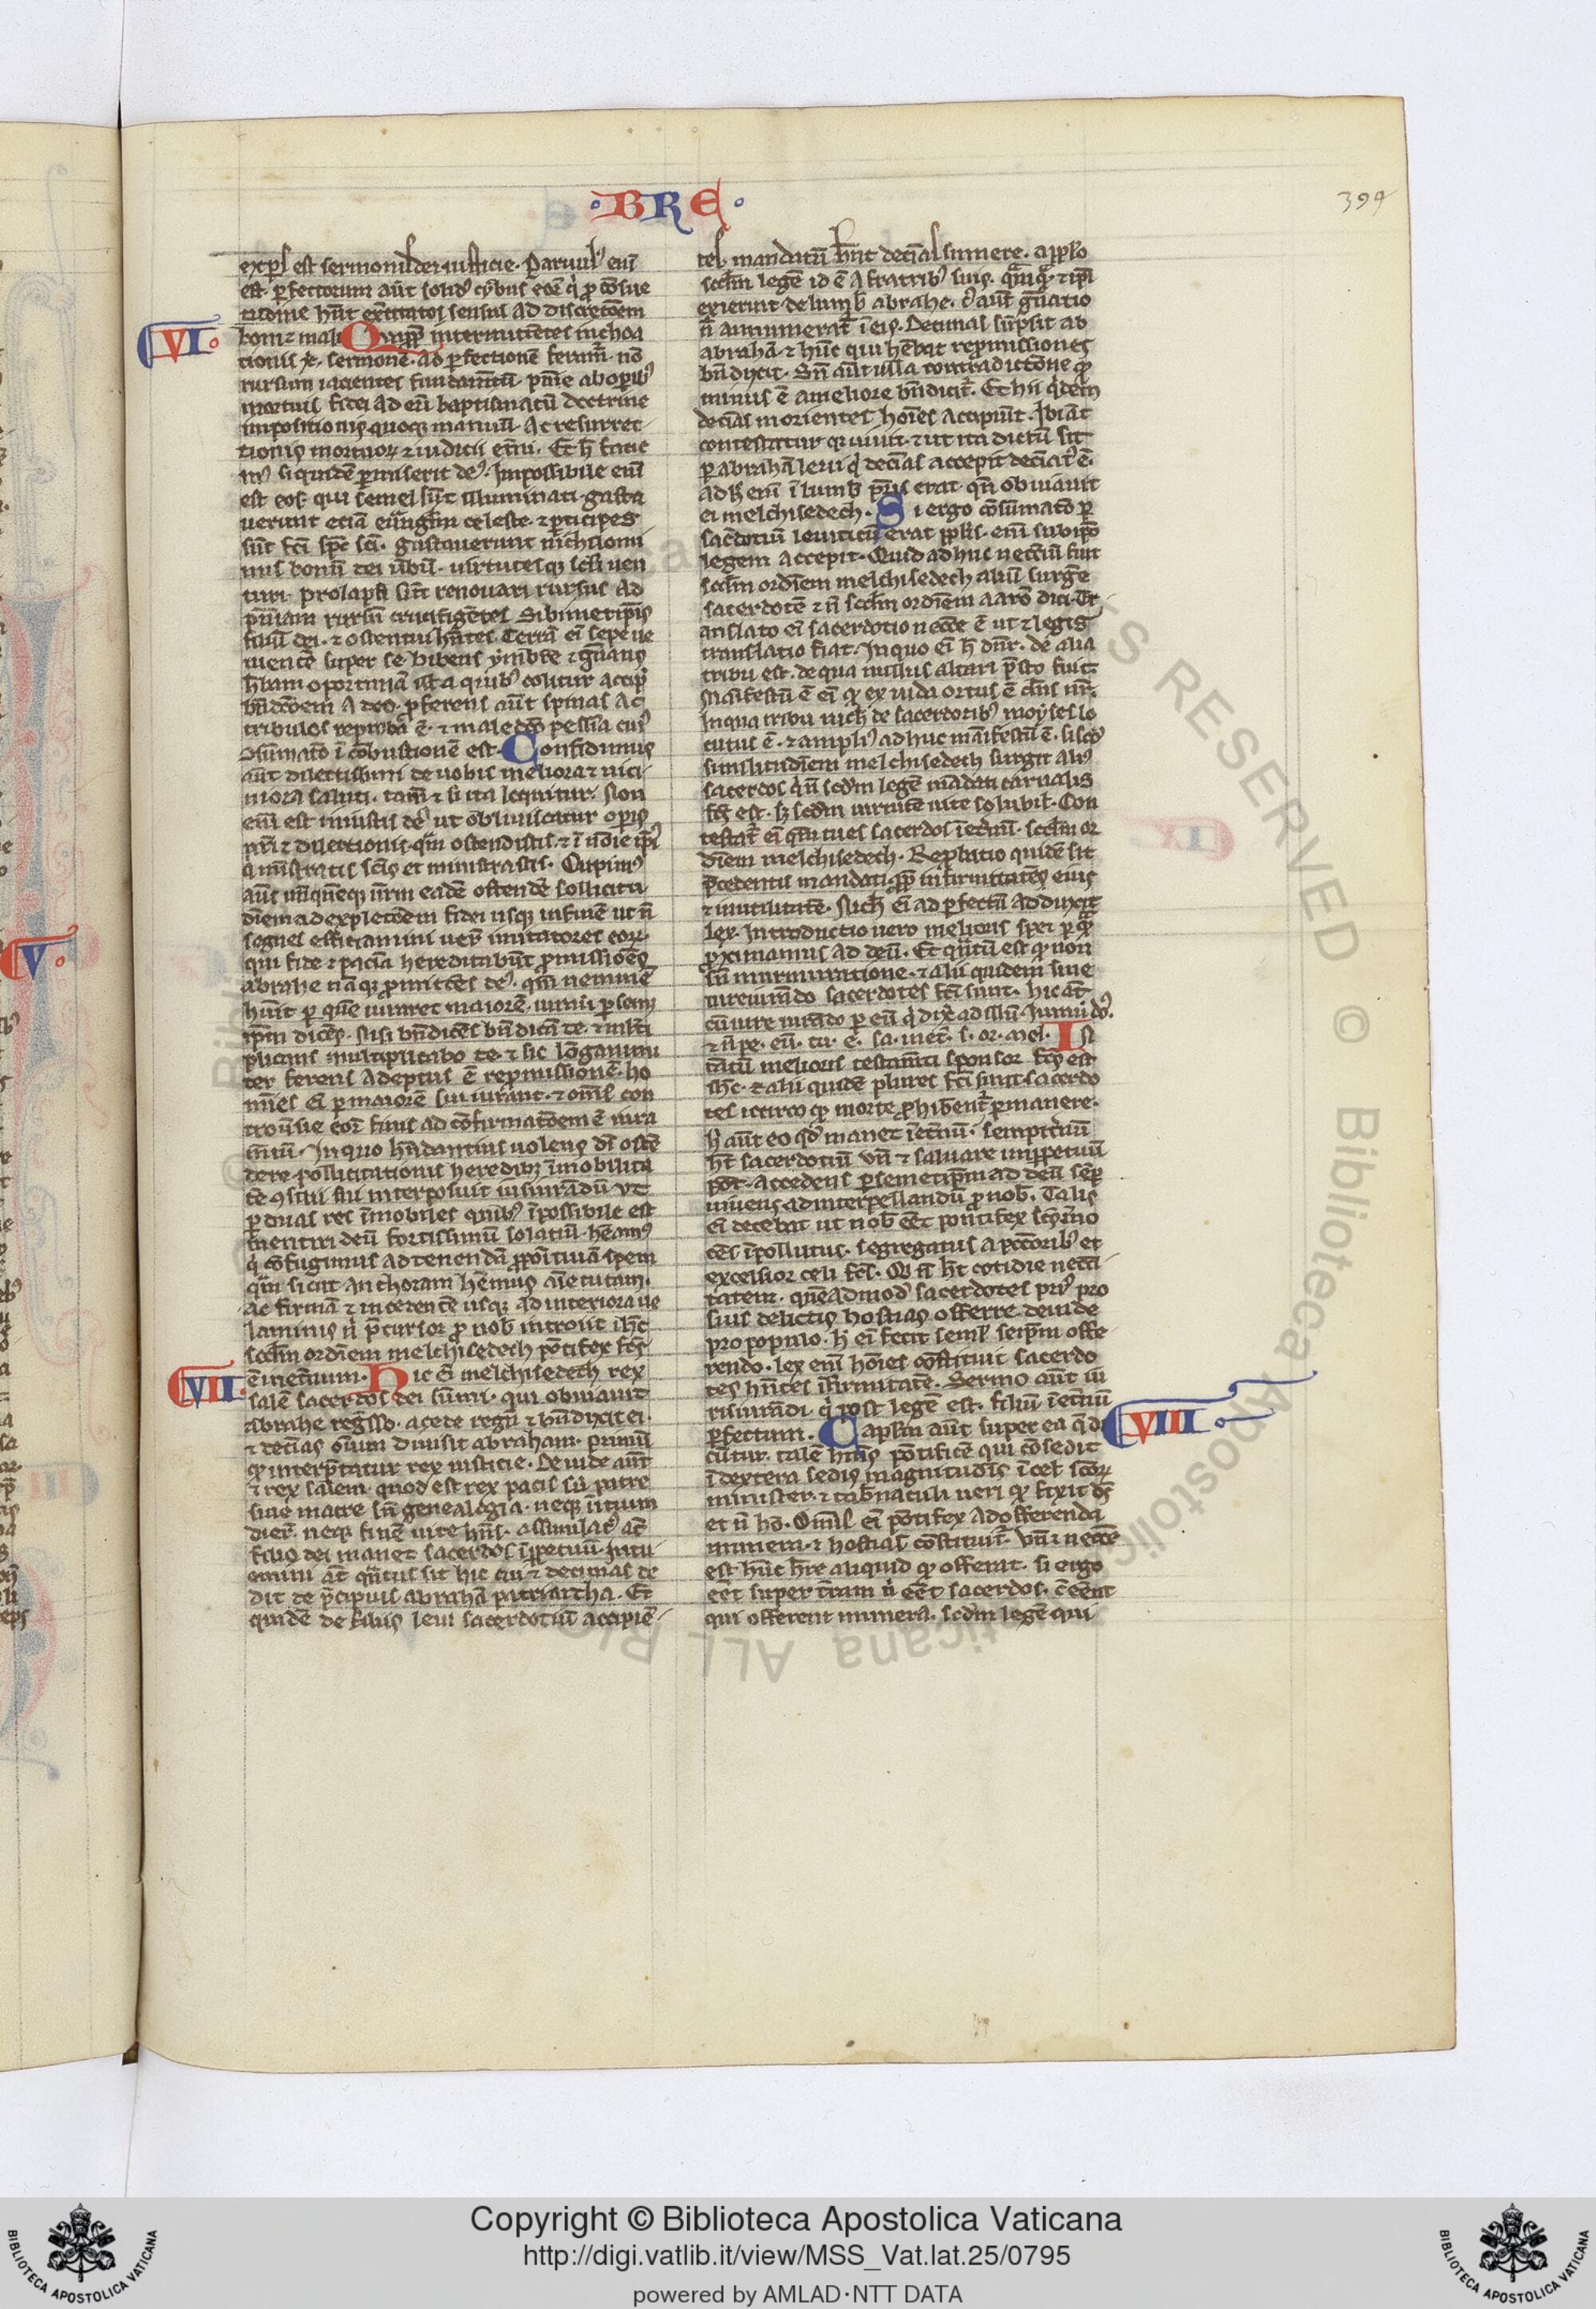 ·BRE·
394
expers est sermonis dei iusticie. Paruulus eni
est. perfectorum aut solidus cybus eoru qi pro consue
tudine hnt exercitatos sensus ad discretoem
VI·
boni & mali. Quapp intermittentes inchoa
tionis xi. sermone. ad perfectione feramr. no
rursum iacientes fundamtu. pnie ab operib
mortuis fidei ad deu baptismatu doctrine
impositionis quoq manuu. Ac resurrec
tionis mortuor & iudicii etni. Et h facie
mus siquide permiserit deus. Impossibile eni
est eos. qui semel sut illuminati. gusta
uerunt etia
sut fci spc sci. gustauerunt nichilomi
nus bonu dei ubu. uirtutesq scli uen
turi. prolapsi sut renouari rursus ad
pniam rursu crucifigetes sibimetipsis
filiu dei. & ostentui hntes. Terra ei sepe ue
niente super se bibens ymbre & gnans
hbam oportuna illis a quib colitur accip
bndcoem a deo. proferens aut spinas ac
tribulos reproba e. & maledco pxima cui
osumato i cobustione est. Confidimus
aut dilectissimi de uobis meliora & uici
niora saluti. tam & si ita loquimur. Non
eni est iniustus de ut obliuiscatur operis
uri & dilectionis. qm ostendistis. & i noie ipsi
q ministratis scis et ministrastis. Cupimus
aut unuqueq urm eade ostende sollicitu
dinem ad expletoem fidei usq in fine ut n
segnes efficiamini ueru imitatores eoru.
qui fide & pacia hereditabut promissiones
V·
abrahe naq promittes de. qm nemine
huit per que iuraret maiore. iurauit per semet
ipm dices. Nisi bndices bndica te. & multi
plicans multiplicabo te. & sic longanimi
ter ferens adeptus e repmissione. ho
mines ei per maiore sui iurant. & omis con
trouersie eoru finis ad confirmatoem e iura
mtu. In quo habundantius uolens ds oste
dere. pollicitationis heredib imobilita
te osilii sui interposuit iusiuradu. Vt
per duas res imobiles quib ipossibile est
mentiri deu fortissimu solatiu. heamus
q cofugimus ad tenenda propoita spem
qm sicut anchoram hemus aie tutam.
ac firma & incedente usq ad interiora ue
laminis u precursor pro nob introiit ihc
scdm ordinem melchisedech potifex fcs
VII·
ineternum. Hic ei melchisedech rex
sale sacerdos dei sumi. qui obuiauit
abrahe regsso. a cede regu & bndixit ei.
& decias oium diuisit abraham. primu
q interpretatur rex iusticie. Deinde aut
& rex salem. quod est rex pacis sn patre
sine matre sn genealogia. neq initium
dieru. neq fine uite hns. assimilatus at
filio dei manet sacerdos iperpetuu. Intu
emini at quatus sit hic cui & decimas de
dit de precipuis abraha patriarcha. Et
quide de filiis leui sacerdotiu accipie
tes mandatu hnt decias sumere. a pplo
scdm lege id e a fratrib suis. quaq & ipi
exierint de lumb abrahe. Cui aut gneratio
n annumerat i eis. Decimas supsit ab
abraha. & hnc qui hebat repromissiones
bndixit. Sn aut ulla contradictione q
minus e a meliore bndicit. Et hii qdem
decias morientes hoies accipiut. Ibi aut
contestatur qr uiuit. & ut ita dictu sit
per abraha leui q decias accepit decimatus e.
adhuc eni i lumb pris erat. qn obuiauit
ei melchisedech. Si ergo cosumato per
sacdotiu leuiticu erat ppls. eni sub ipso
legem accepit. Quid adhuc necciu fuit
scdm ordinem melchisedech aliu surge
sacerdote & n scdm ordinem aaro dici. Tr
anslato ei sacerdotio necce e ut & legis
translatio fiat. In quo ei h dnr. de alia
tribu est. de qua nullus altari presto fuit.
Manifestu e ei q ex iuda ortus e dns nr.
In qua tribu nich de sacerdotib moyses lo
cutus e. & amplius adhuc manifestu e. si scdm
similitudinem melchisedech surgit alius
sacerdos q n scdm lege madati carnalis
fcs est. sz scdm uirtute uite solubil. Con
testat ei qm tu es sacerdos i eternu. scdm or
dinem melchisedech. Reprobatio quide sit
precedentis mandati. prop infirmitates eius
& inutilitate. Nich ei ad perfectu adduxit
lex. Introductio uero melioris spei per qua
proximamus ad deu. Et quatu est q non
sn iureiuratione. & alii quidem sine
iureiurado sacerdotes fci sunt. hic at
cu iure iurado per eu q dix ad illu. Iurauit dns.
& n pe. eu. tu. e. sa. inet. s. or. mel. In
tatu melioris testamti sponsor fcs est
ihc. & alii quide plures fci sunt. sacerdo
tes idcirco q morte prohibent permanere.
h aut eo qd manet i etnu. sempitnu
ht sacerdotiu vn & saluare in perpetuu
pot. accedens per semetipm ad deu sep
uiuens ad interpellandu pro nob. Talis
ei decebat ut nob eet pontifex scs ino
ces ipollutus. segregatus a pctorib et
excelsior celis fcs. Q n ht cotidie necci
tatem. queadmod sacerdotes prius pro
suis delictis hostias offerre. deinde
pro populo. h ei fecit semel seipm offe
rendo. lex eni hoies constituit sacerdo
tes hntes ifirmitate. Sermo aut iu
risiurandi. q post lege est. filiu i eternu
VIII·
perfectum. Capitulum aut super ea q di
cutur. tale hmus potifice qui cosedit
i dextera sedis magnitudinis i cel scoru
minister. & tabnaculi ueri q fixit ds
et n ho. Omis ei potifex ad offerenda
munera. & hostias constituit. Vn & necce
est hnc hre aliquid q offerat. si ergo
eet super tram n eet sacerdos. cu eent
qui offerent munera. scdm lege qui
Copyright © Biblioteca Apostolica Vaticana
http://digi.vatlib.it/view/MSS_Vat.lat.25/0795
powered by AMLAD·NTT DATA
BIBLIOTECA APOSTOLICA VATICANA
BIBLIOTECA APOSTOLICA VATICANA